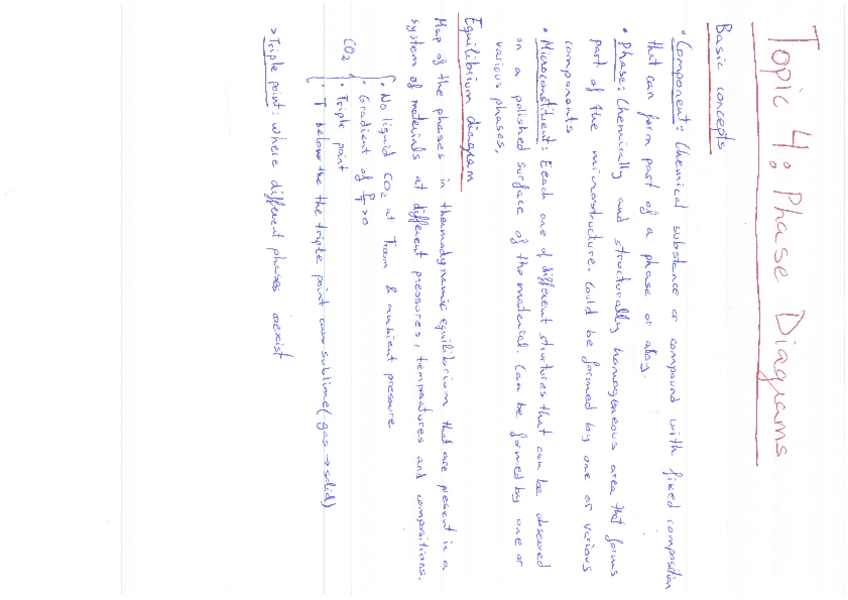 Topic 4: Phase Diagrams
Basic concepts
• Component: Chemical substance or compound with fixed composition
that can form part of a phase or alloy.
• Phase: Chemically and structurally homogeneous area that forms
part of the microstructure. Could be formed by one or various
components
• Microconstituent: Eeach one of different structures that can be observed
on a polished surface of the material. Can be formed by one or
various phases,
Equilibrium diagram
Map of the phases in thermodynamic equilibrium that are present in a
system of materials at different pressures, temperatures and compositions.
CO2 { • No liquid CO2 at Troom & ambient pressure
• Gradient of P/T >0
• Triple point
• T below the the triple point can sublime (gas → solid)
> Triple point: where different phases coexist